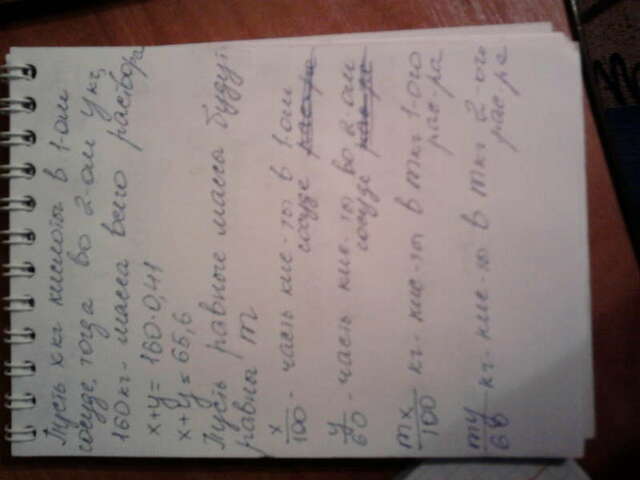 Пусть x кг кислоты в 1-ом
сосуде, тогда во 2-ом y кг,
160 кг - масса всего раствора
x+y = 160·0,41
x+y = 65,6
Пусть равные массы будут
равны m
x/100 - часть кис-ты в 1-ом
сосуде рас-ре
y/60 - часть кис-ты во 2-ом
сосуде рас-ре
mx/100 кг - кис-ты в m кг 1-ого
рас-ра
my/60 кг - кис-ты в m кг 2-ого
рас-ра